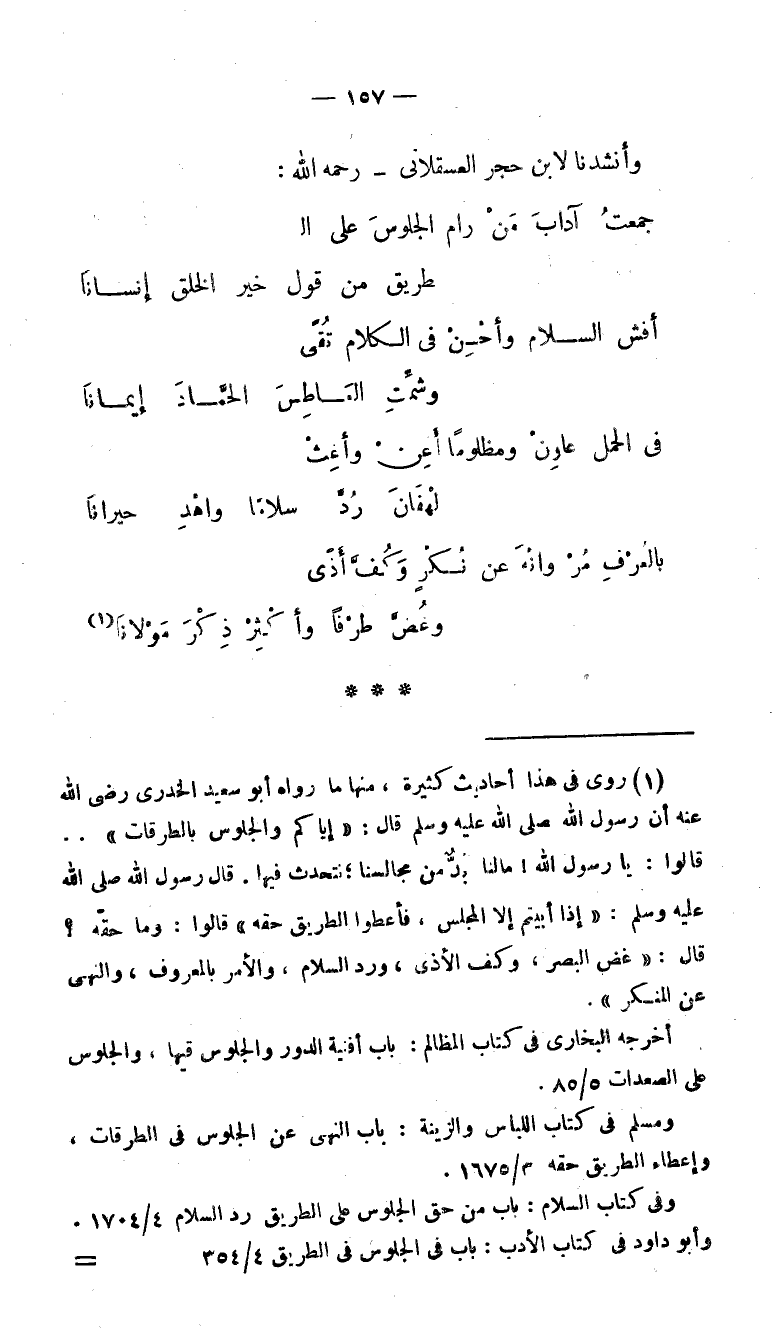 — ١٥٧ —
وأنشدنا لابن حجر العسقلانى – رحمه الله :
جمعتُ آدابَ مَنْ رام الجلوسَ على الـ
طريق من قول خير الخلق إنسانَا
أفش السلام وأحْسِنْ فى الكلام تُقًى
وشمِّتِ العَاطِسَ الحمَّادَ إيمانَا
فى الحمل عاوِنْ ومظلومًا أَعِنْ وأغِثْ
لهْفَانَ رُدَّ سلامًا واهْدِ حيرانَا
بالعُرْفِ مُرْ وانْهَ عن نُكْرٍ وَكُفَّ أَذًى
وغُضَّ طرْفًا وأكْثِرْ ذِكْرَ مَوْلانَا(١)
* * *
(١) روى فى هذا أحاديث كثيرة ، منها ما رواه أبو سعيد الخدرى رضى الله
عنه أن رسول الله صلى الله عليه وسلم قال : « إياكم والجلوس بالطرقات » . .
قالوا : يا رسول الله ! مالنا بُدٌّ من مجالسنا ؛ نتحدث فيها . قال رسول الله صلى الله
عليه وسلم : « إذا أبيتم إلا المجلس ، فأعطوا الطريق حقه » قالوا : وما حقّه ؟
قال : « غض البصر ، وكف الأذى ، ورد السلام ، والأمر بالمعروف ، والنهى
عن المنكر » .
أخرجه البخارى فى كتاب المظالم : باب أفنية الدور والجلوس فيها ، والجلوس
على الصعدات ٨٥/٥ .
ومسلم فى كتاب اللباس والزينة : باب النهى عن الجلوس فى الطرقات ،
وإعطاء الطريق حقه ١٦٧٥/٣ .
وفى كتاب السلام : باب من حق الجلوس على الطريق رد السلام ١٧٠٤/٤ .
وأبو داود فى كتاب الأدب : باب فى الجلوس فى الطريق ٣٥٤/٤ =